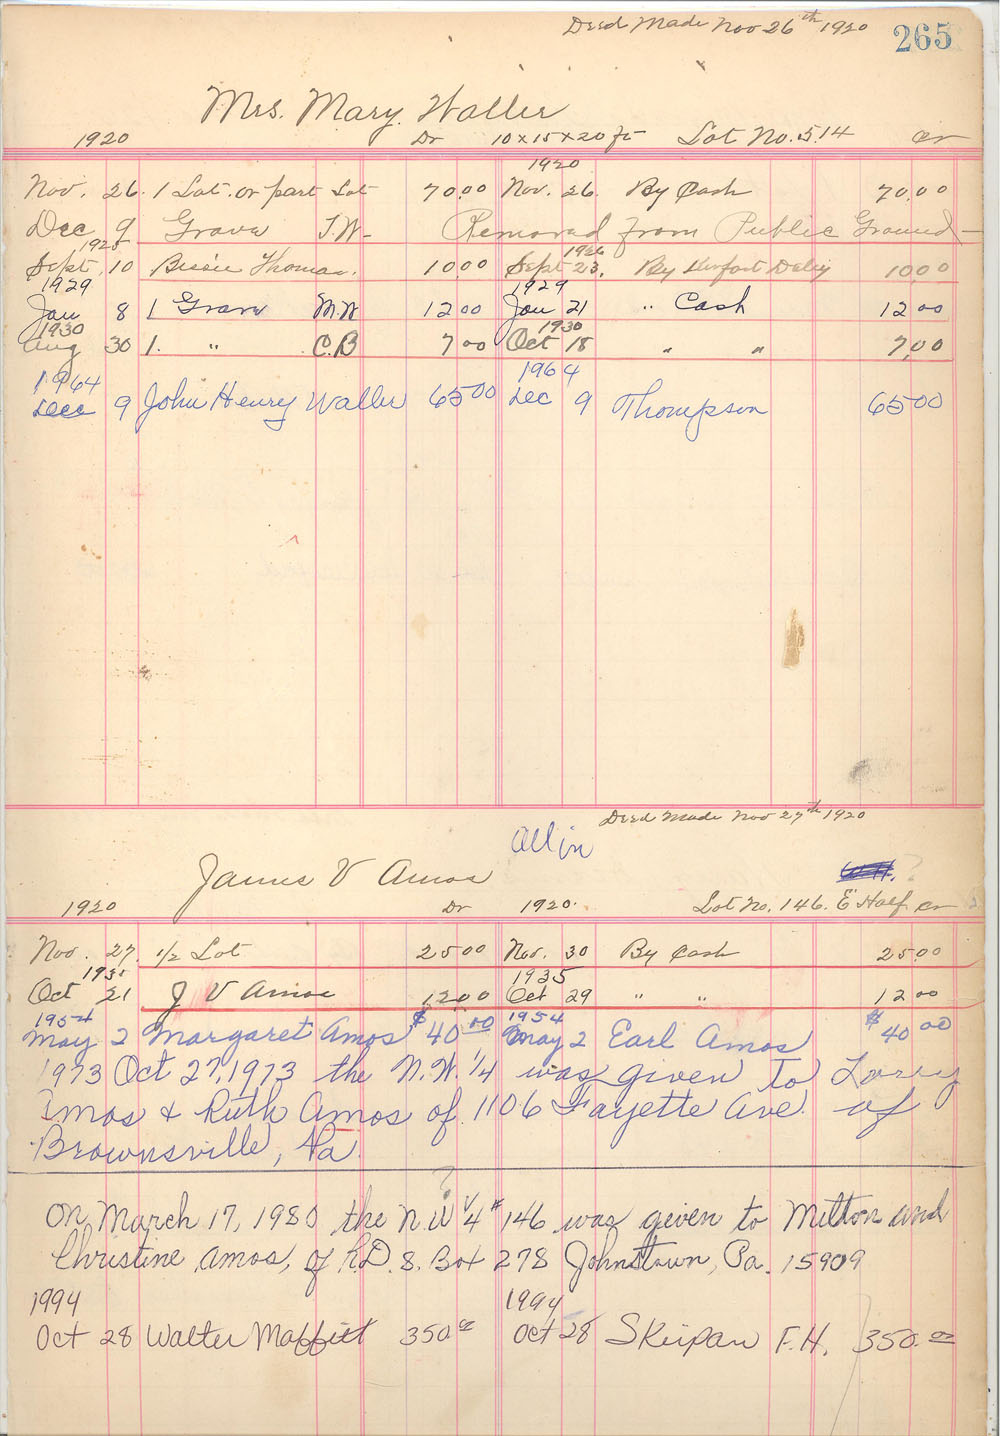 Deed Made Nov 26th 1920 265
Mrs. Mary Waller
1920 Dr 10x15x20 ft Lot No. 514 Cr
1920
Nov. 26. 1 Lot. or part Lot 70.00 Nov. 26. By Cash 70.00
Dec 9 Grave T.W- Removed from Public Ground-
1925 1926
Sept. 10 Bessie Thomas. 10.00 Sept 23. By 10.00
1929 1929
Jan 8 1 Grave M.W 12 00 Jan 21 " Cash 12 00
1930 1930
Aug 30 1. " C.B 7 00 Oct 18 " " 7,00
1964 1964
Dec 9 John Henry Waller 65 00 Dec 9 Thompson 65 00
Deed Made Nov 27th 1920
All in
James V Amos
1920 Dr 1920. Lot No. 146. E Half Cr
Nov. 27. 1/2 Lot 25 00 Nov. 30 By Cash 25.00
1935 1935
Oct 21 J V Amos 12.00 Oct 29 " " 12 00
1954 1954
May 2 Margaret Amos $ 40 00 May 2 Earl Amos $ 40 00
1973 Oct 27, 1973 the N.W. 1/4 was given to Larry
Amos & Ruth Amos of 1106 Fayette Ave. of
Brownsville, Pa.
?
On March 17, 1980 the N.W 1/4 # 146 was given to Milton and
Christine Amos, of R.D. 8. Box 278 Johnstown, Pa. 15909
1994 1994
Oct 28 Walter Moffitt 350.00 Oct 28 Skirpan F.H. 350.00